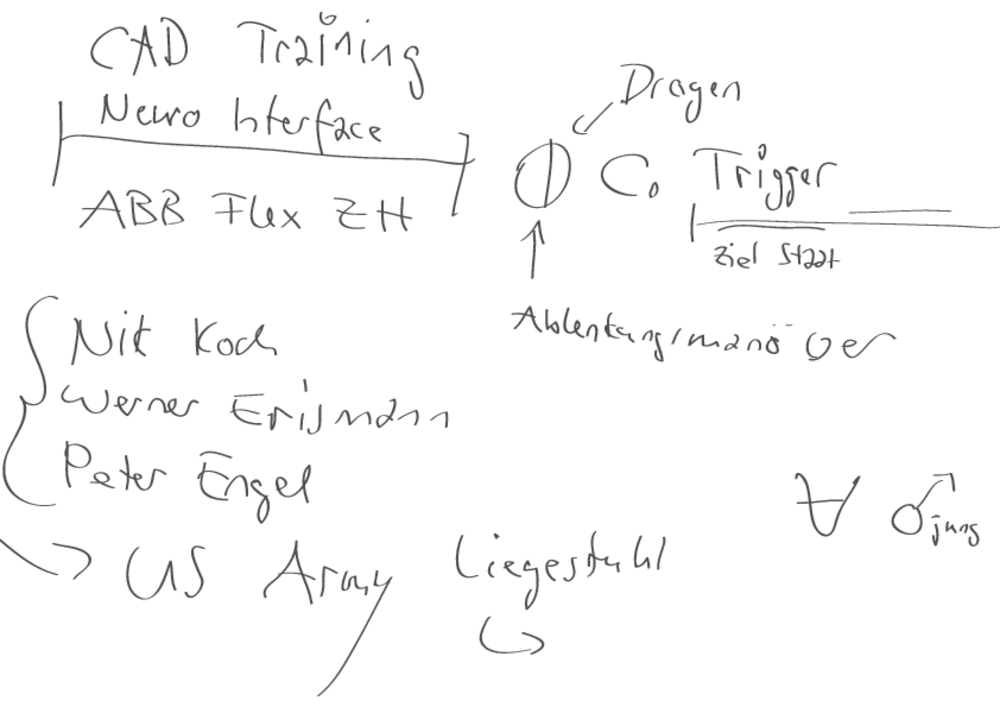 CAD Training
Neuro Interface
ABB Flex ZH
Dragen
C. Trigger
Ziel Staat
Ablenkungsmanöver
Nik Koch
Werner Erismann
Peter Engel
US Army
Liegestuhl
∀ ♂ jung